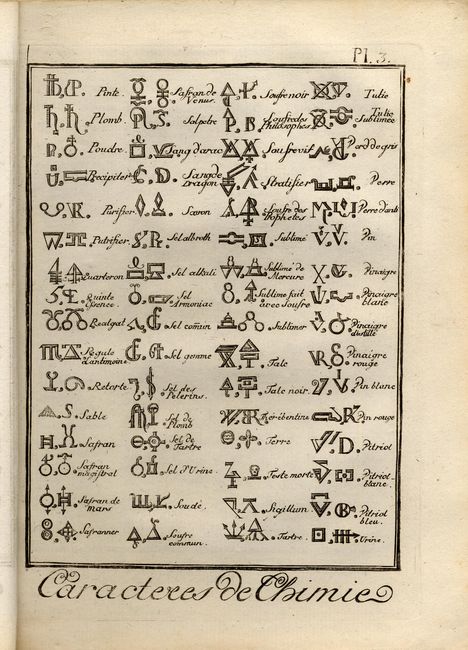 Pl. 3.
Pinte Safran de Venus. Soufre noir Tutie
Plomb Salpetre Soufre des Philosophes Tutie Sublimée
Poudre Sang d'arac Soufre vif Verd de gris
Recipiter Sang de Dragon Stratifier Verre
Purifier Savon Soufre des Prophetes Verre d'anti
Putrifier Sel albroth Sublimé Vin
Quarteron Sel alkali Sublimé de Mercure Vinaigre
Quinte Essence. Sel Armoniac Sublimé fait avec Soufre Vinaigre blanc
Realgat Sel comūn Sublimer Vinaigre distillé
Regule d'antimoine Sel gemme Talc Vinaigre rouge
Retorte Sel des Pelerins. Talc noir. Vin blanc
Sable Sel de Plomb Therébentine Vin rouge
Safran Sel de Tartre Terre Vitriol
Safran magistral Sel d'Urine. Teste morte Vitriol blanc.
Safran de mars Soude. Sigillum Vitriol bleu.
Safranner Soufre commun. Tartre. Urine.
Caracteres de Chimie